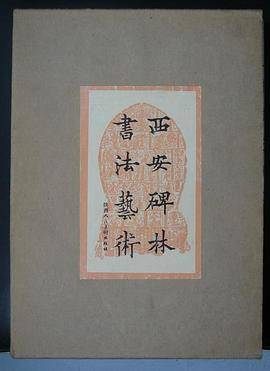 西安碑林
書法藝術
陕西人民美術出版社